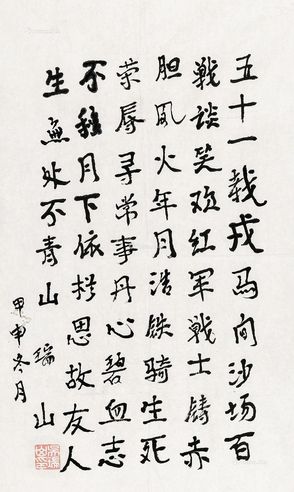 五十一载戎马间沙场百
戰談笑欢红軍戰士鑄赤
胆風火年月浩铁骑生死
荣辱寻常事丹心碧血志
不移月下依栏思故友人
生無处不青山 瑞山
甲申冬月